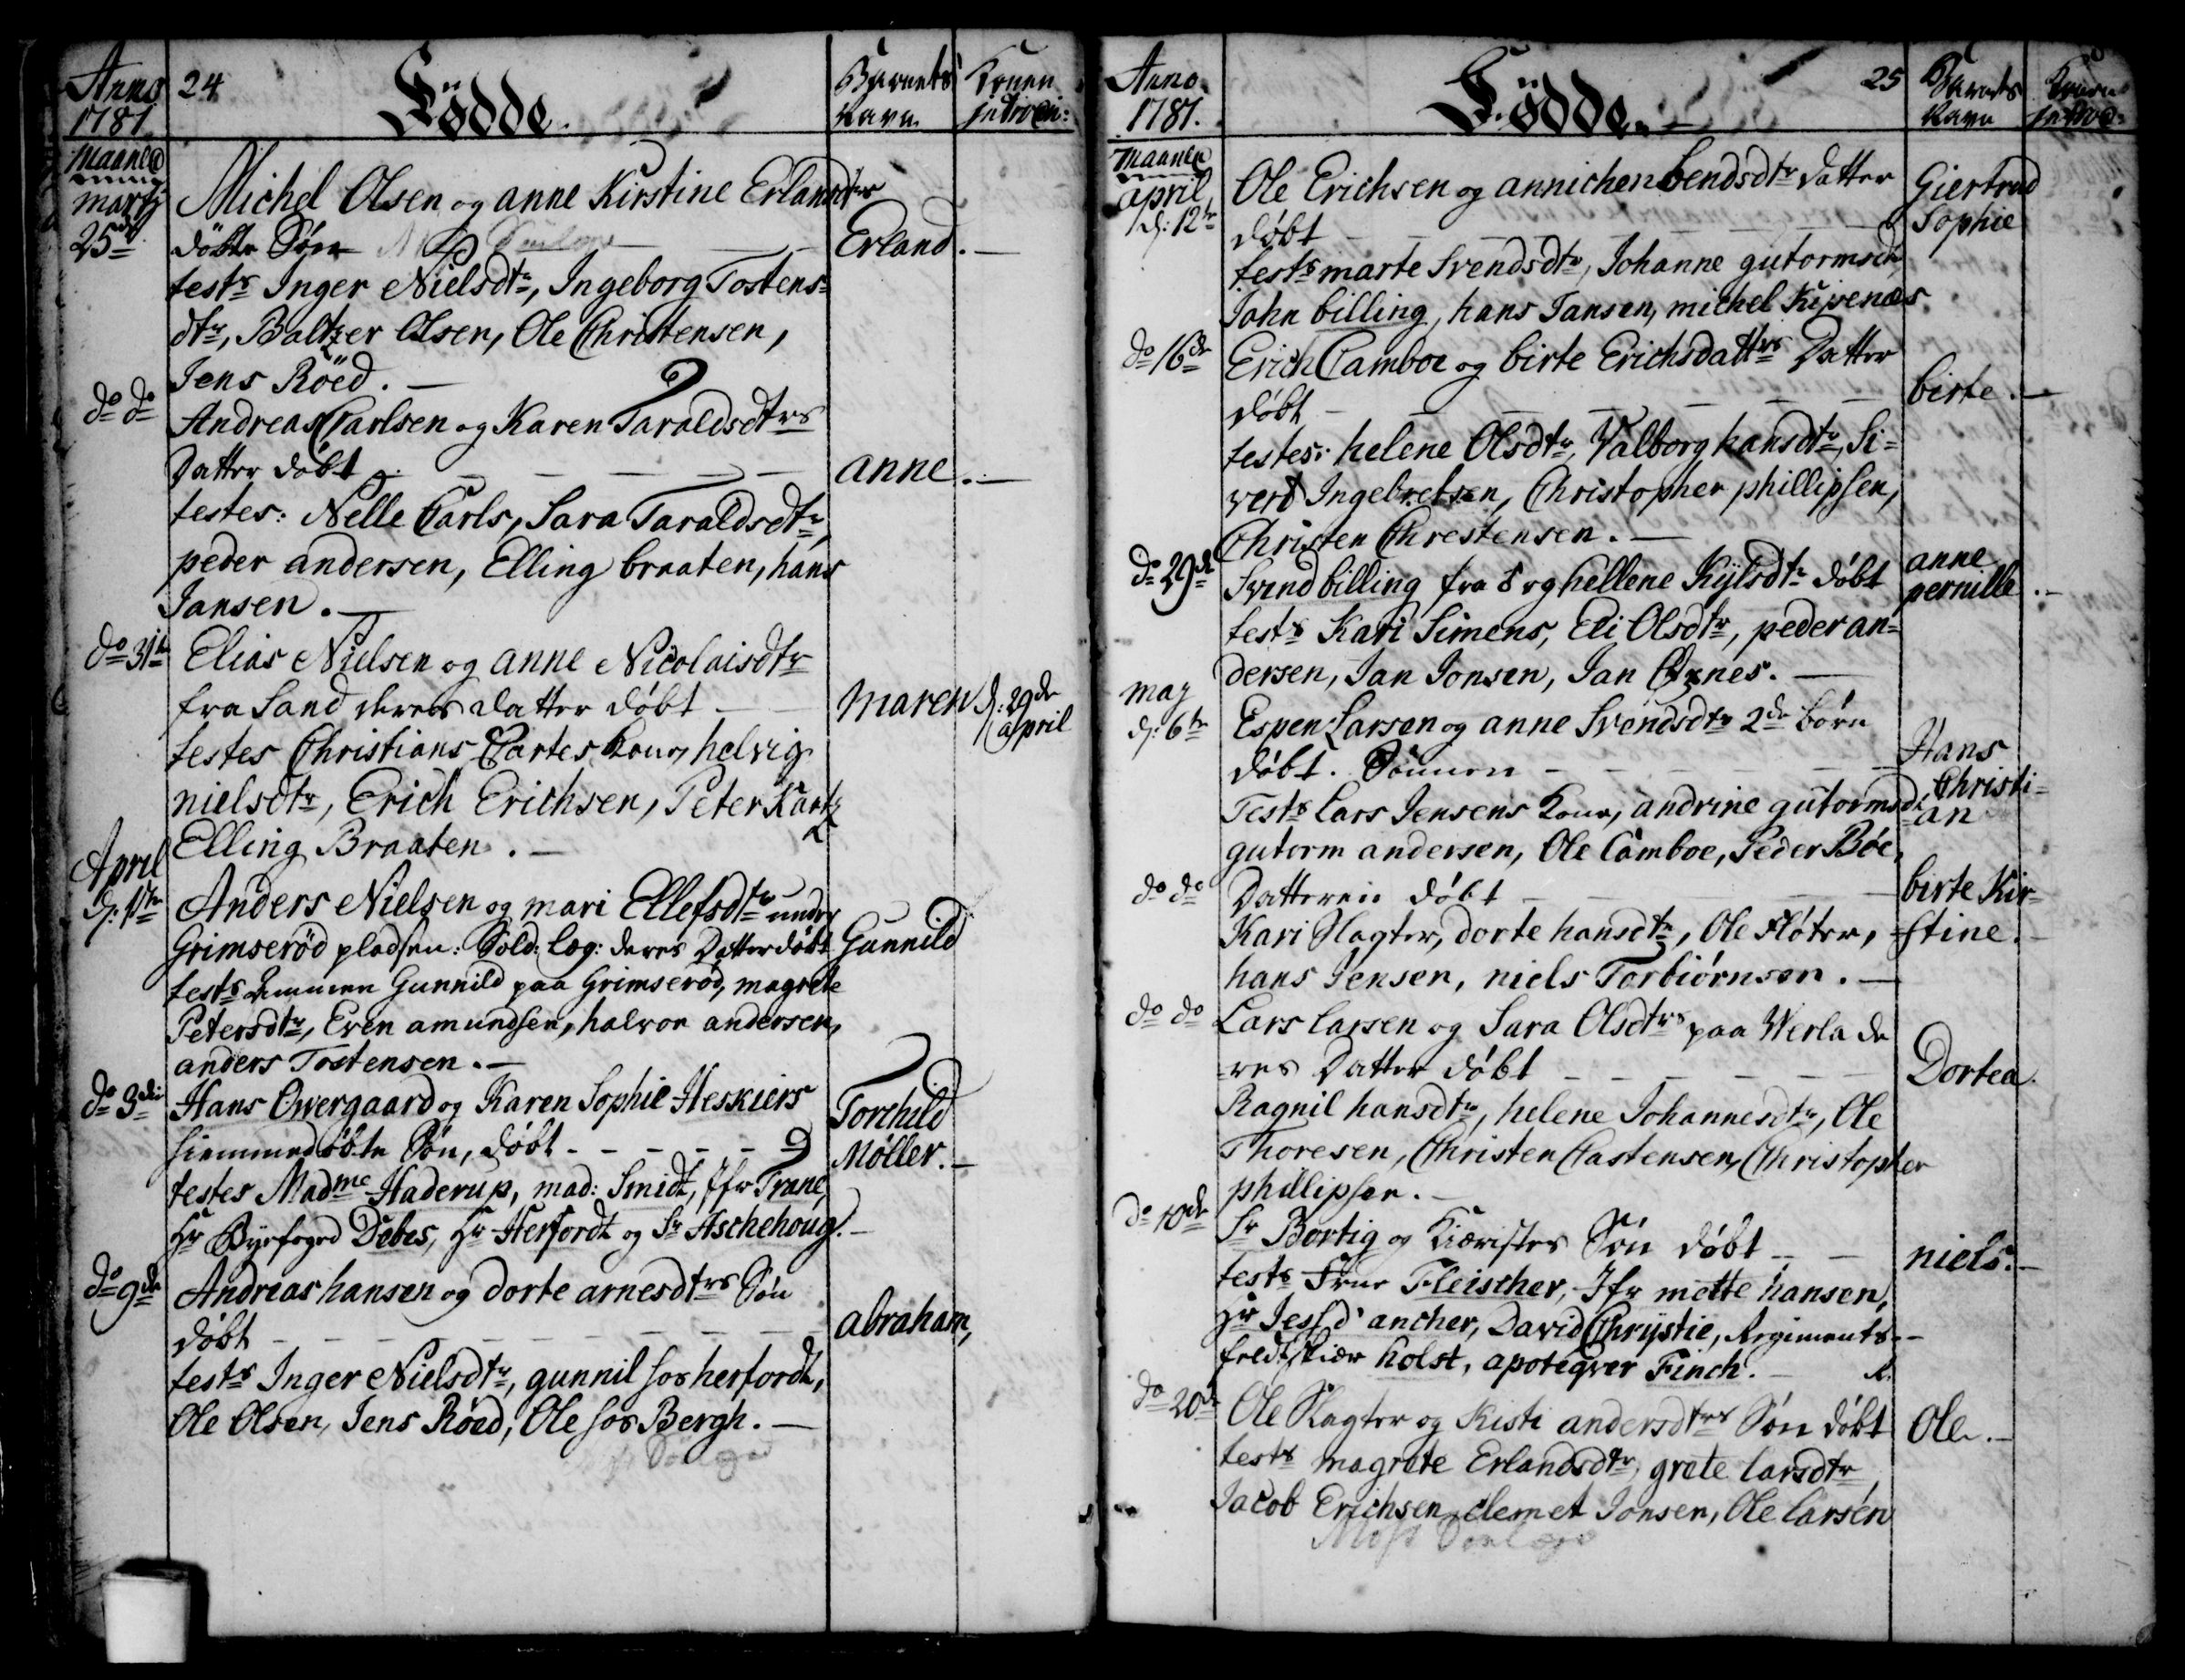 Anno 1787
24
Fødde.
Barnets Navn
Konen introdu:
Maaned
Marty 25de
Michel Olsen og anne Kirstine Erlansdtrs
døbte Søn
Erland.
tests Inger Nielsdtr, Ingeborg Tostens=
dtr, Baltzer Olsen, Ole Christensen,
Jens Röed.
do do
Andreas Carlsen og Karen Taraldsdtrs
Datter døbt
anne.
testes: Nelle Carls, Sara Taraldsdtr,
peder andersen, Elling braaten, hans
Jansen.
do 31te
Elias Nielsen og anne Nicolaisdtr
fra Sand deres datter døbt
maren
d: 29de april
testes Christians Cartes Kone, helvig
nielsdtr, Erich Erichsen, Peter Kartz
Elling Braaten.
April d: 1te
Anders Nielsen og mari Ellefsdtr under
Grimserød pladsen: Sold: Læg: deres Datter døbt
Gunnild
tests Gunnild paa Grimserød, magrete
Petersdtr, Even amundsen, halvor andersen,
anders Tostensen.
do 3die
Hans Owergaard og Karen Sophie Heskiers
hiemmedøbte Søn, døbt
Torchild Møller.
testes Madme Haderup, mad: Smidt, Jfr Trane,
Hr Byefoged Debes, Hr Herfordt og Sr Aschehoug.
do 9de
Andreas hansen og dorte arnesdtrs Søn
døbt
abraham,
tests Inger Nielsdtr, gunnil hos herfordt,
Ole Olsen, Jens Röed, Ole hos Bergh.
Anno 1787.
Fødde.
25
Barnets Navn
Konen introd:
Maaned
april d: 12te
Ole Erichsen og annichen bendsdtr datter
døbt
Giertrud Sophie
tests marte Svendsdtr, Johanne gutormsdtr,
John billing, hans Jansen, michel Kipenæs.
do 16de
Erich Camboe og birte Erichsdattrs Datter
døbt
birte.
testes: helene Olsdtr, Valborg hansdtr, Si=
verd Ingebretsen, Christopher phillipsen,
Christen Chrestensen.
do 29de
Svend billing fra S og hellene Kylsdtr døbt
anne pernille.
tests Kari Simens, Eli Olsdtr, peder an=
dersen, Jan Jonsen, Jan Øxnes.
may d: 6te
Espen Larsen og anne Svendsdtr 2de børn
døbt. Sønnen
Hans Christi=
an
Tests Lars Jensens Kone, andrine gutormsdt,
gutorm andersen, Ole Camboe, Peder Böe,
do do
Datteren døbt
birte Kir=
stine.
Kari Slagter, dorte hansdtr, Ole Fløter,
hans Jensen, niels Torbiørnsen.
do do
Lars larsen og Sara Olsdtrs paa Werla de
res Datter døbt
Dortea.
Ragnil hansdtr, helene Johannesdtr, Ole
Thoresen, Christen Castensen, Christopher
phillipsen.
do 10de
Sr Bortig og Kiæristes Søn døbt
niels.
tests Frue Fleischer, Jfr mette hansen,
Hr Jess d'ancher, David Chrystie, Regiments
feldtskier holst, apoteqver Finch.
do 20de
Ole Slagter og Kisti andersdtrs Søn døbt
Ole.
tests magrete Erlandsdtr, grete larsdtr
Jacob Erichsen, clemet Jonsen, Ole larsen